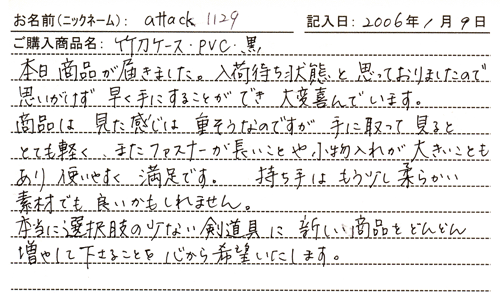 お名前(ニックネーム): attack 1129 記入日: 2006年 1月 9日
ご購入商品名: 竹刀ケース・PVC・黒
本日商品が届きました。入荷待ち状態と思っておりましたので
思いがけず 早く手にすることができ 大変喜んでいます。
商品は 見た感じは 重そうなのですが 手に取って見ると
とても軽く、またファスナーが長いことや小物入れが大きいことも
あり 使いやすく 満足です。 持ち手は もう少し柔らかい
素材でも 良いかもしれません。
本当に選択肢の少ない剣道具に 新しい商品をどんどん
増やして下さることを 心から希望いたします。